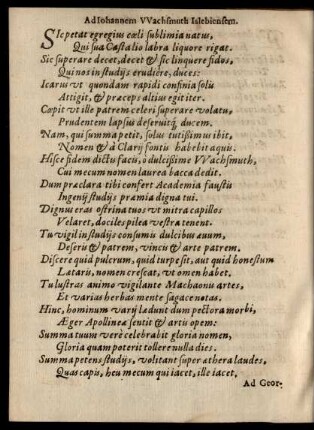 Ad Iohannem VVachsmuth Islebiensem.
SIc petat egregius cœli sublimia vatus,
Qui sua Castalio labra liquore rigat.
Sic superare decet, decet & sic linquere fidos,
Qui nos in studijs erudiere, duces:
Icarus vt quondam rapidi confinia solis
Attigit, & præceps altius egit iter.
Cœpit vt ille patrem celeri superare volatu,
Prudentem lapsus deseruitq; ducem.
Nam, qui summa petit, solus tutissimus ibit,
Nomen & à Clarij fontis habebit aquis.
Hisce fidem dictis facis, ô dulcissime VVachsmuth,
Cui mecum nomen laurea bacca dedit.
Dum præclara tibi confert Academia faustis
Ingenij studijs præmia digna tui.
Dignus eras ostrina tuos vt mitra capillos
Velaret, dociles pilea vestra tenent.
Tu vigil in studijs consumis dulcibus æuum,
Deseris & patrem, vincis & arte patrem.
Discere quid pulcrum, quid turpe sit, aut quid honestum
Lataris, nomen crescat, vt omen habet.
Tu lustras animo vigilante Machaonis artes,
Et varias herbas mente sagace notas.
Hinc, hominum varij lædunt dum pectora morbi,
Æger Apollinea sentit & artis opem:
Summa tuum verè celebrabit gloria nomen,
Gloria quam poterit tollere nulla dies.
Summa petens studijs, volitant super æthera laudes,
Quas capis, heu mecum qui iacet, ille iacet.
Ad Geor-